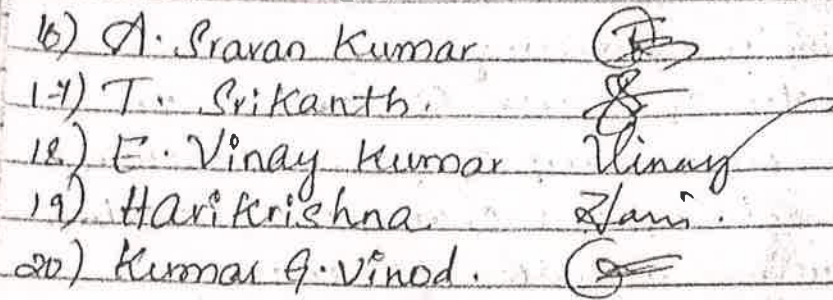 16) A. Sravan Kumar
17) T. Srikanth.
18) E. Vinay Kumar Vinay
19) Harikrishna Hari.
20) Kumar G. Vinod.